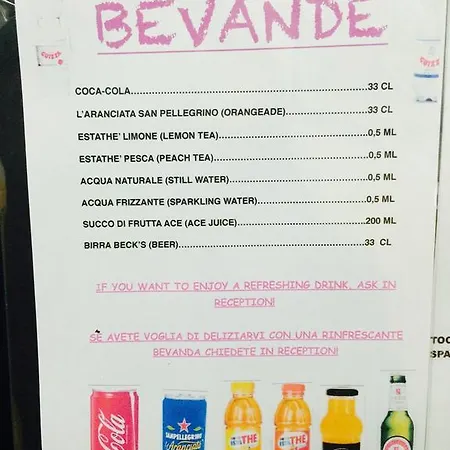 BEVANDE
COCA-COLA......................................................................33 CL
L'ARANCIATA SAN PELLEGRINO (ORANGEADE).....................33 CL
ESTATHE' LIMONE (LEMON TEA)......................................0,5 ML
ESTATHE' PESCA (PEACH TEA).......................................0,5 ML
ACQUA NATURALE (STILL WATER)...................................0,5 ML
ACQUA FRIZZANTE (SPARKLING WATER)...........................0,5 ML
SUCCO DI FRUTTA ACE (ACE JUICE)................................200 ML
BIRRA BECK'S (BEER).....................................................33 CL
IF YOU WANT TO ENJOY A REFRESHING DRINK, ASK IN
RECEPTION!
SE AVETE VOGLIA DI DELIZIARVI CON UNA RINFRESCANTE
BEVANDA CHIEDETE IN RECEPTION!
SANPELLEGRINO
Aranciata
THE
THE
Cola